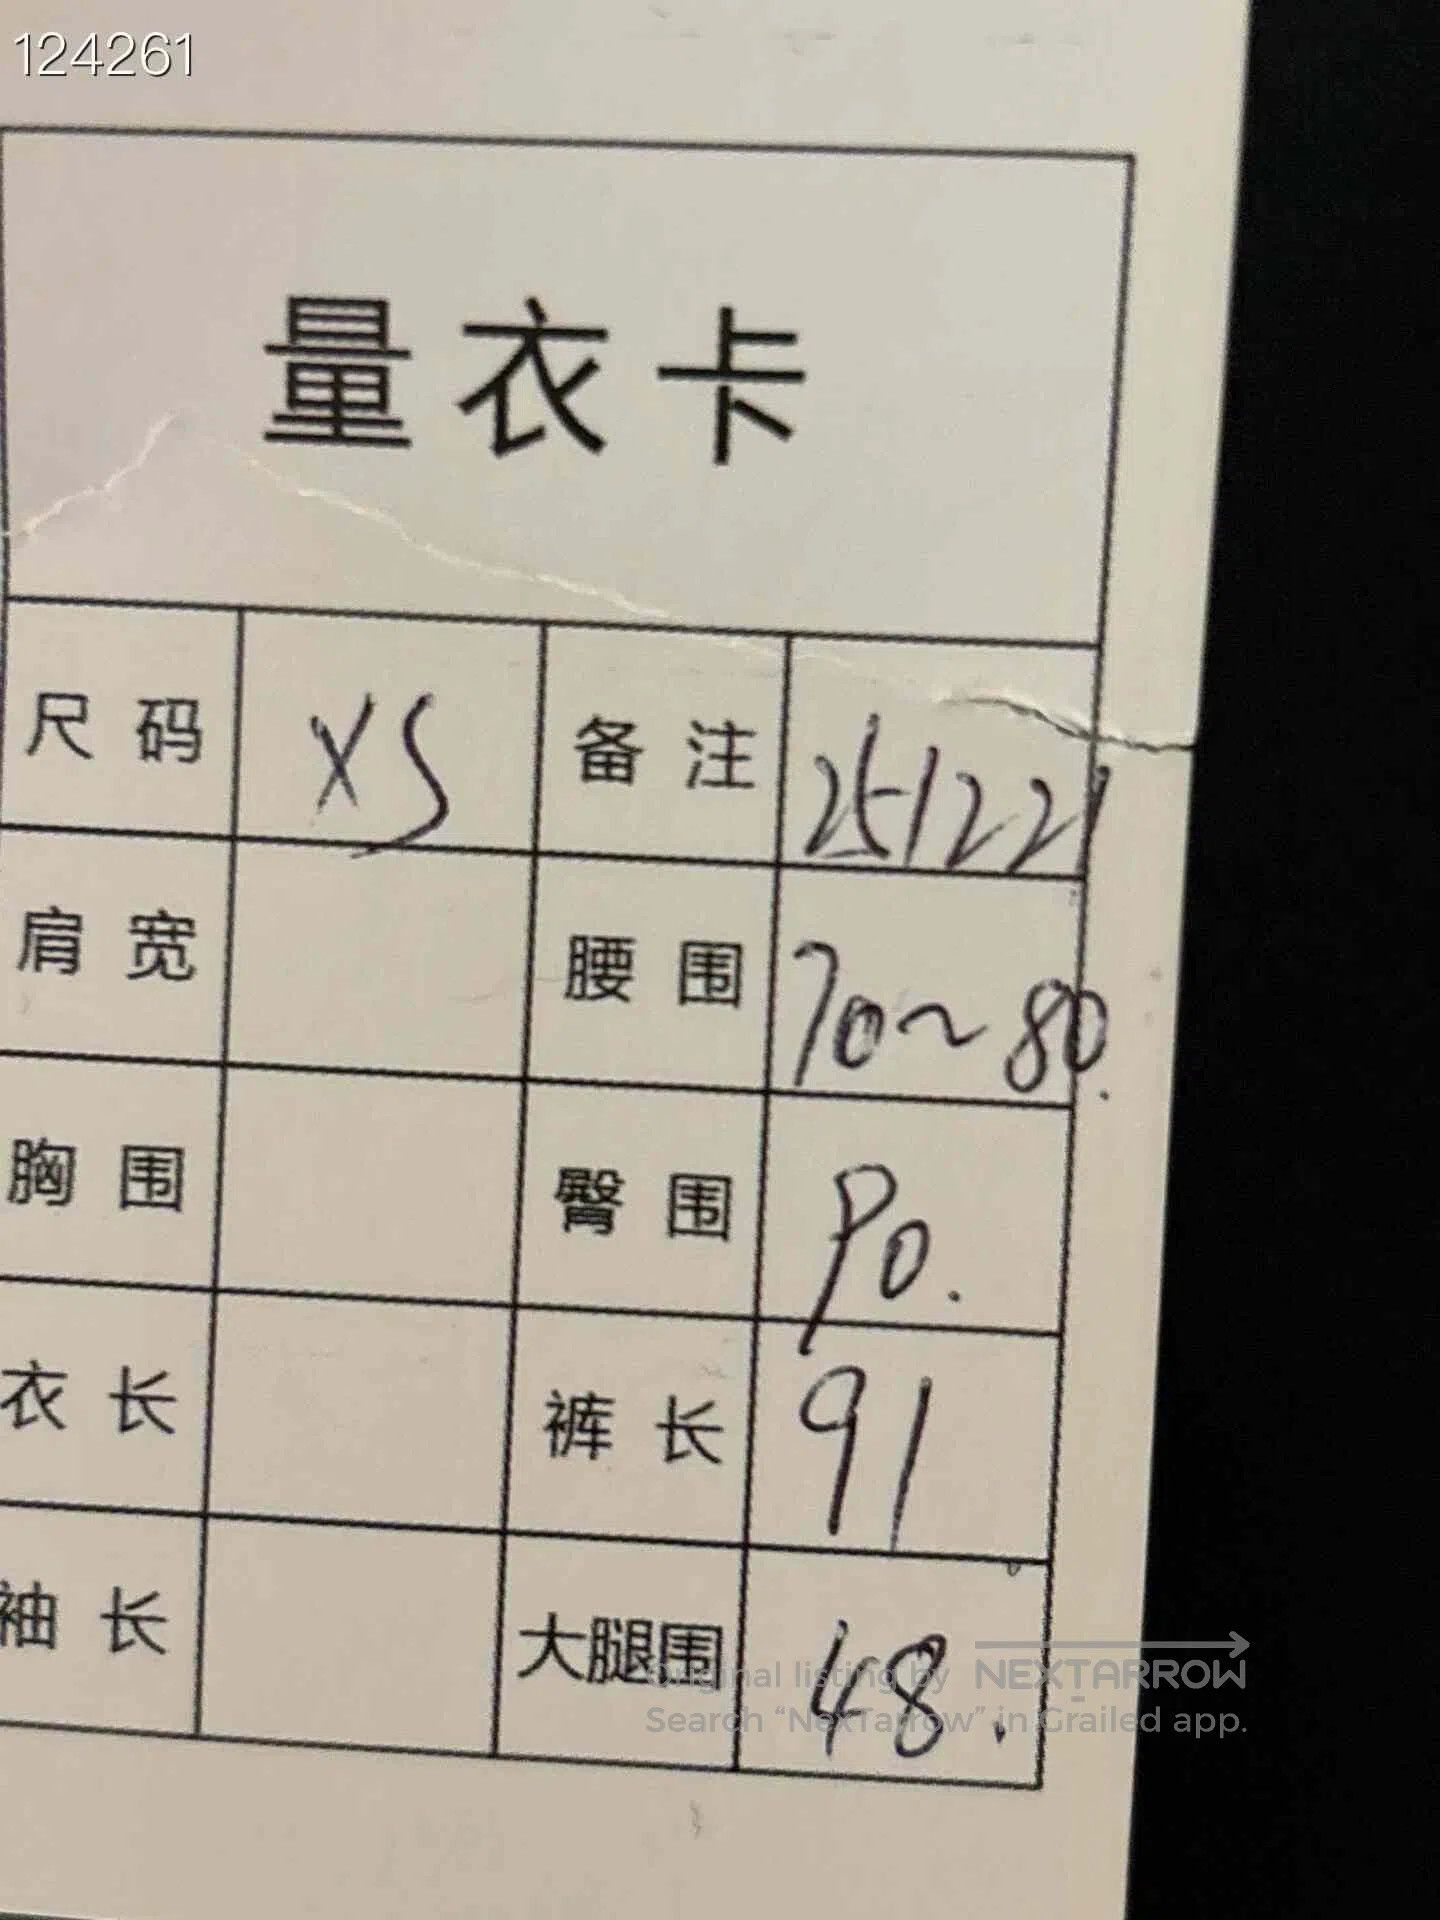 124261
量衣卡
尺码 XS 备注 251221
肩宽 腰围 70~80.
胸围 臀围 90.
衣长 裤长 91
袖长 大腿围 48.
Original listing by NEXTARROW
Search “NexTarrow” in Grailed app.